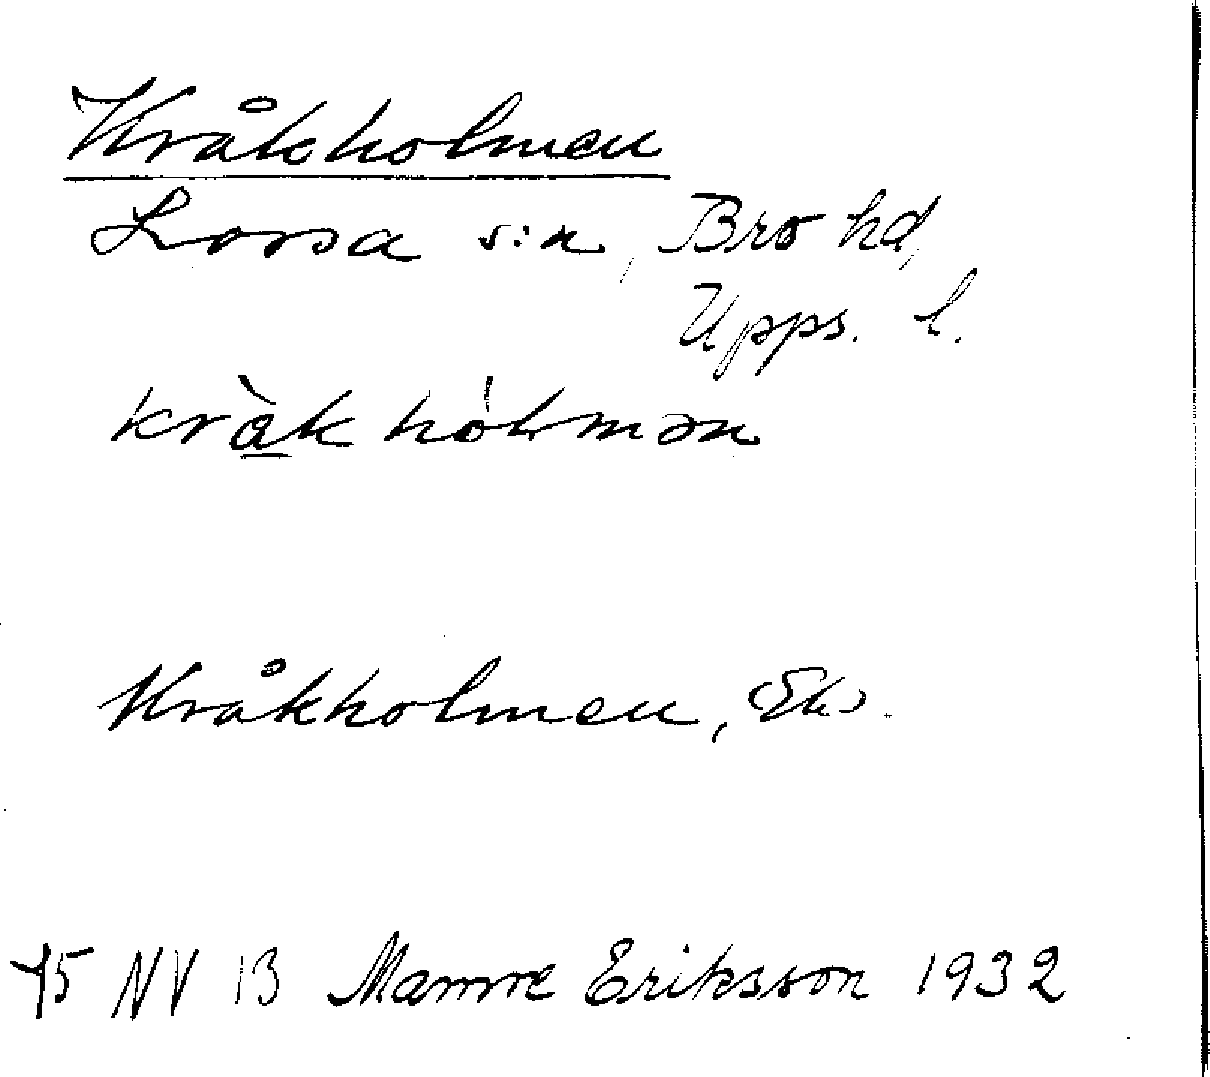 Kråkholmen
Lossa sn, Bro hd,
Upps. l.
kràk hólmən
Kråkholmen, Ek.
75 NV 13 Manne Eriksson 1932